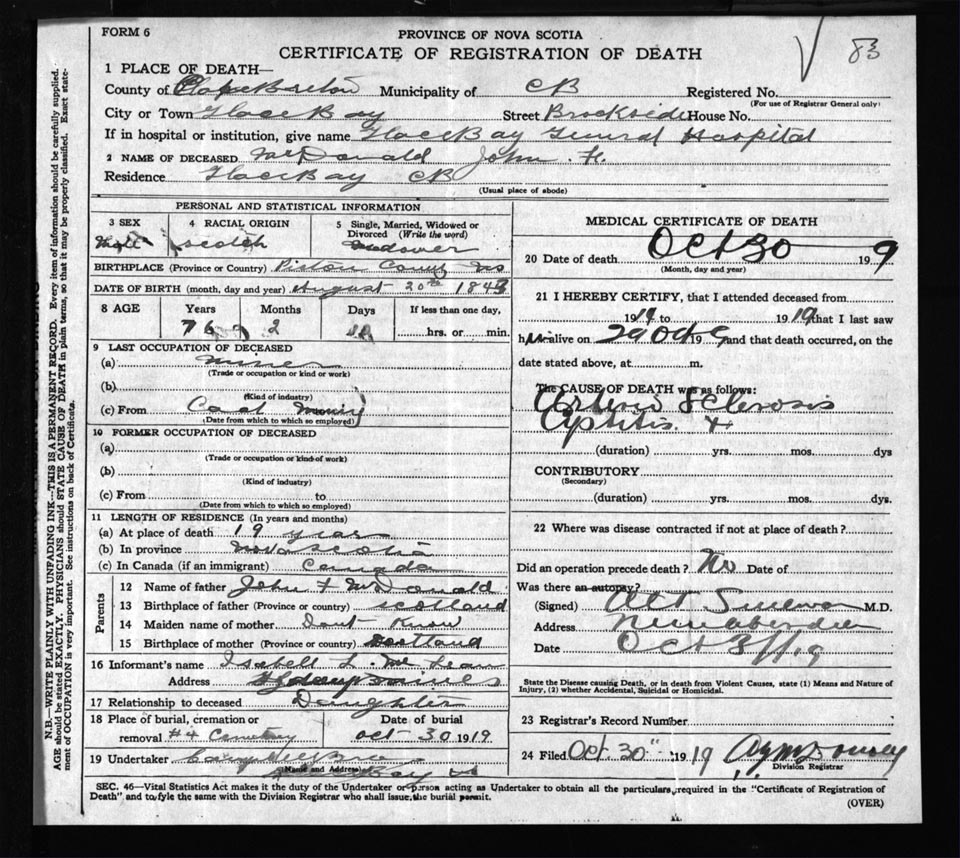 FORM 6
PROVINCE OF NOVA SCOTIA
CERTIFICATE OF REGISTRATION OF DEATH
83
1 PLACE OF DEATH—
County of Cape Breton Municipality of CB Registered No.
(For use of Registrar General only)
City or Town Glace Bay Street Brookside House No.
If in hospital or institution, give name Glace Bay General Hospital
2 NAME OF DECEASED McDonald John F.
Residence Glace Bay CB
(Usual place of abode)
PERSONAL AND STATISTICAL INFORMATION
3 SEX 4 RACIAL ORIGIN 5 Single, Married, Widowed or
Divorced (Write the word)
Male scotch
BIRTHPLACE (Province or Country) Pictou County NS
DATE OF BIRTH (month, day and year) August 20th 1843
8 AGE Years Months Days If less than one day,
76 2 10 hrs. or min.
9 LAST OCCUPATION OF DECEASED
(a) Miner
(Trade or occupation or kind or work)
(b)
(Kind of industry)
(c) From Coal
(Date from which to which so employed)
10 FORMER OCCUPATION OF DECEASED
(a)
(Trade or occupation or kind of work)
(b)
(Kind of industry)
(c) From to
(Date from which to which so employed)
11 LENGTH OF RESIDENCE (In years and months)
(a) At place of death 19 years
(b) In province Nova Scotia
(c) In Canada (if an immigrant) Canada
Parents
12 Name of father John F McDonald
13 Birthplace of father (Province or country) scotland
14 Maiden name of mother Dont Know
15 Birthplace of mother (Province or country) Scotland
16 Informant's name Isabell L. McLean
Address
17 Relationship to deceased Daughter
18 Place of burial, cremation or Date of burial
removal #4 Cemetery oct 30 1919
19 Undertaker
(Name and Address) Bay
MEDICAL CERTIFICATE OF DEATH
20 Date of death Oct 30 19 9
(Month, day and year)
21 I HEREBY CERTIFY, that I attended deceased from
1919 to 1919 that I last saw
him alive on 29 Oct 19 9 and that death occurred, on the
date stated above, at m.
The CAUSE OF DEATH was as follows:
Arterio Sclerosis
Cystitis. +
(duration) yrs. mos. dys
CONTRIBUTORY
(Secondary)
(duration) yrs. mos. dys.
22 Where was disease contracted if not at place of death?
Did an operation precede death? No Date of
Was there an autopsy?
(Signed) M.D.
Address New Aberdeen
Date Oct 31/19
State the Disease causing Death, or in death from Violent Causes, state (1) Means and Nature of
Injury, (2) whether Accidental, Suicidal or Homicidal.
23 Registrar's Record Number
24 Filed Oct. 30" 1919
Division Registrar
SEC. 46—Vital Statistics Act makes it the duty of the Undertaker or person acting as Undertaker to obtain all the particulars required in the "Certificate of Registration of
Death" and to file the same with the Division Registrar who shall issue the burial permit.
(OVER)
N.B.—WRITE PLAINLY WITH UNFADING INK—THIS IS A PERMANENT RECORD. Every item of information should be carefully supplied.
AGE should be stated EXACTLY. PHYSICIANS should STATE CAUSE OF DEATH in plain terms, so that it may be properly classified. Exact state-
ment of OCCUPATION is very important. See instructions on back of Certificate.